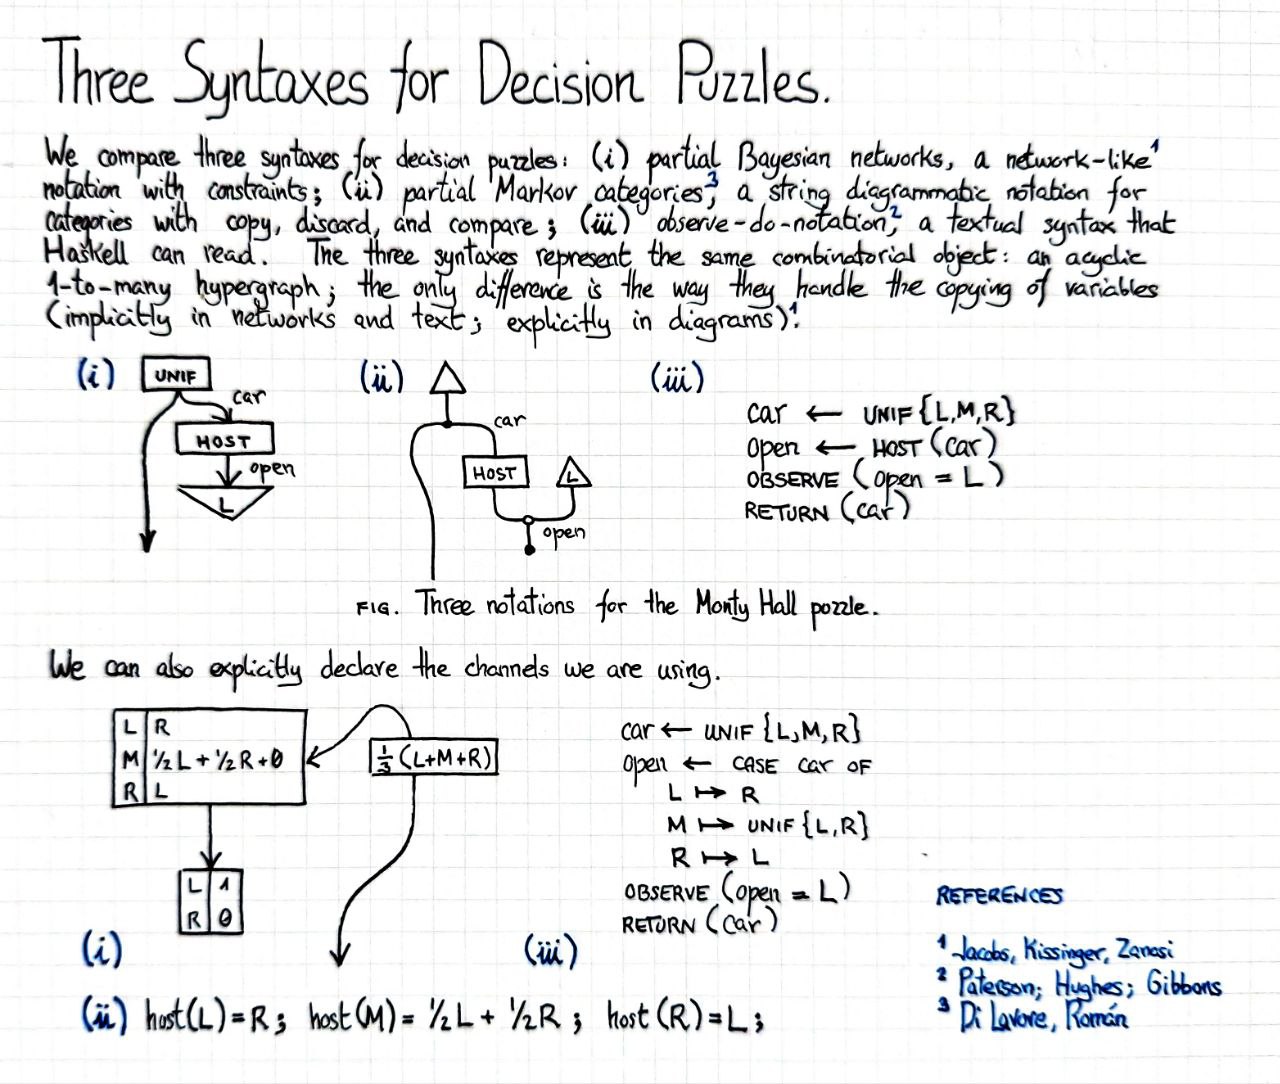 Three Syntaxes for Decision Puzzles.
We compare three syntaxes for decision puzzles: (i) partial Bayesian networks, a network-like¹
notation with constraints; (ii) partial Markov categories,³ a string diagrammatic notation for
categories with copy, discard, and compare; (iii) observe-do-notation,² a textual syntax that
Haskell can read. The three syntaxes represent the same combinatorial object: an acyclic
1-to-many hypergraph; the only difference is the way they handle the copying of variables
(implicitly in networks and text; explicitly in diagrams)¹.
(i)
UNIF
car
HOST
open
L
(ii)
car
HOST
L
open
(iii)
car ← UNIF{L,M,R}
open ← HOST(car)
OBSERVE (open = L)
RETURN (car)
FIG. Three notations for the Monty Hall puzzle.
We can also explicitly declare the channels we are using.
L R
M ½L+½R+0
R L
⅓(L+M+R)
L 1
R 0
(i)
car ← UNIF{L,M,R}
open ← CASE car OF
L ↦ R
M ↦ UNIF{L,R}
R ↦ L
OBSERVE (open = L)
RETURN (car)
(iii)
(ii) host(L)=R; host(M)= ½L + ½R; host(R)=L;
REFERENCES
¹ Jacobs, Kissinger, Zanasi
² Paterson; Hughes; Gibbons
³ Di Lavore, Román